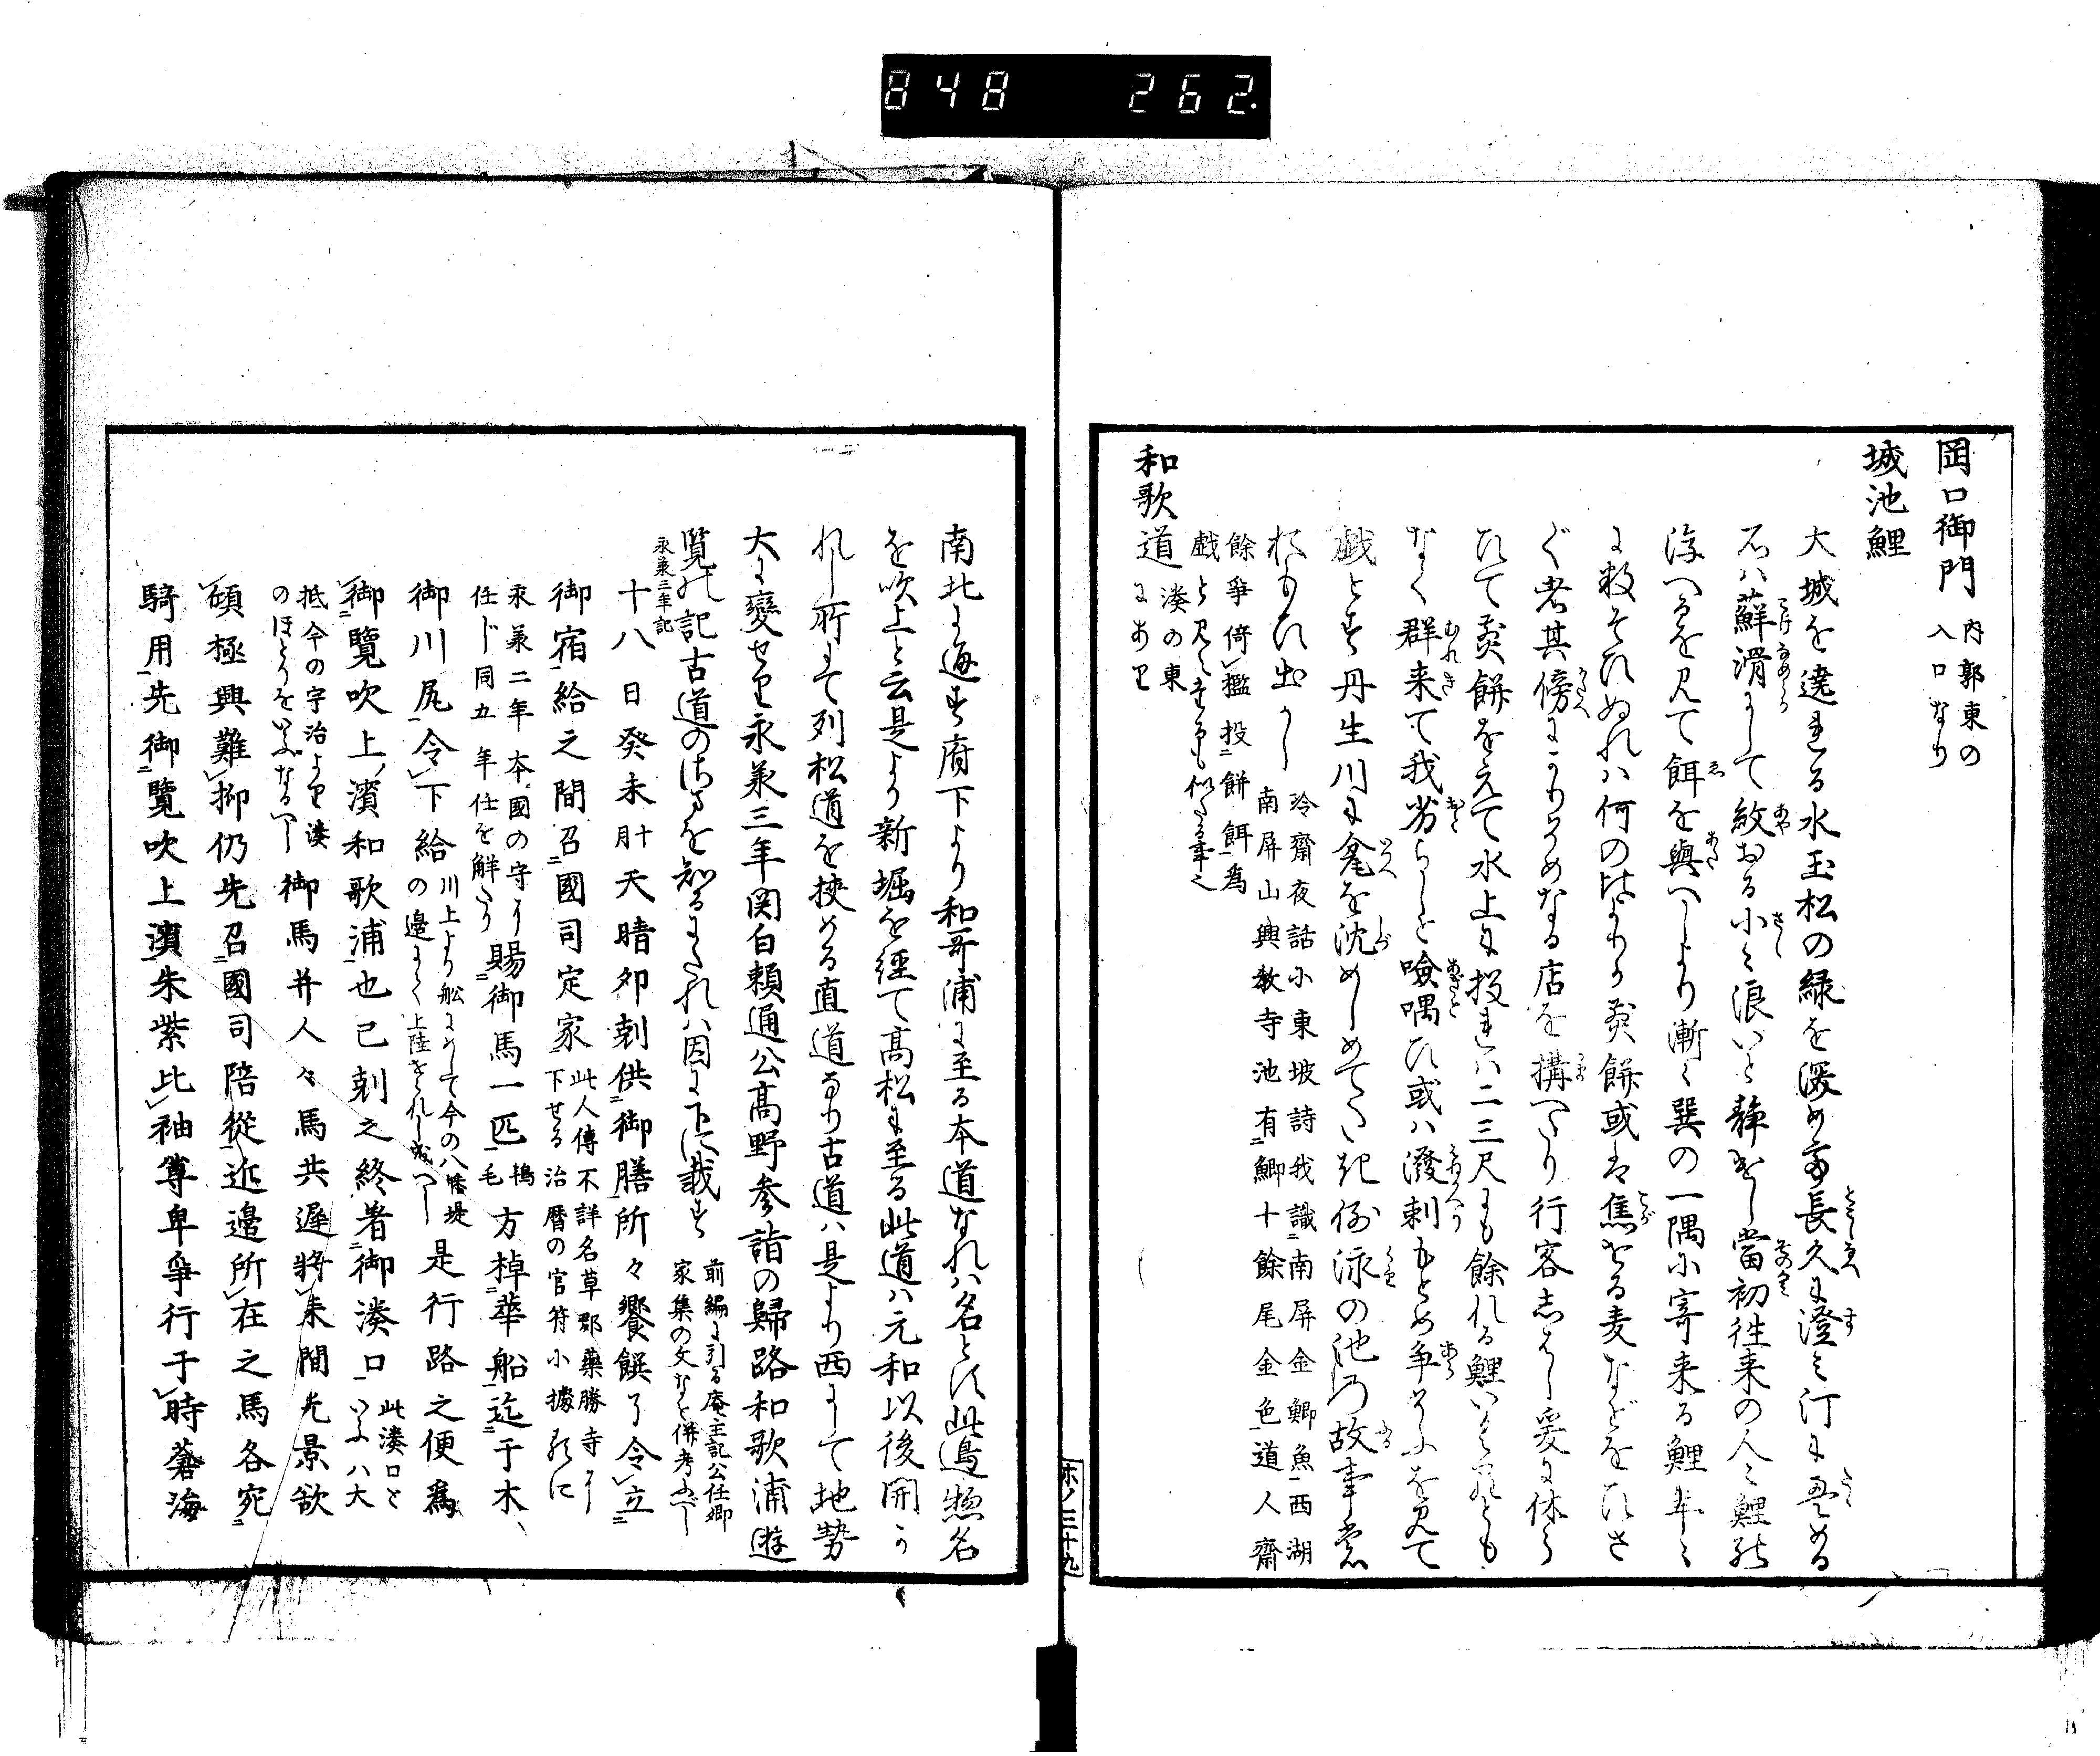 848 262.
岡口御門 内郭東の
入口なり
城池鯉
大城を遶れる水玉松の緑を湛め 長久に澄み汀に 畳める
石ハ蘇滑にして紋おる小々浪いと静けし當初往来の人々鯉の
浮へるを見て餌を與へしより漸く巽の一隅に寄来る鯉年々
に数そひぬれハ何の比よりか 餅或は焦せる麦などをひさ
ぐ者其傍に かりそめなる店を構へたり行客しはし爰に休らひて
餅をえて水上に投れハ二三尺にも餘れる鯉いくらとも
なく群来て我劣らしと噞喁ひ或ハ潑剌もとめ争そふを見て
戯とす丹生川に を沈めしめて 泳の池の故事 思ひ出
冷齋夜話小東坡詩我識南屏金鯽魚西湖
南屏山興教寺池有鯽十餘尾金色道人齋
餘爭倚檻投餅餌為
戯と見えたるも似たる事也
和歌道 湊の東
にあり
南北に通す府下より和哥浦に至る本道なれハ名とす此邉惣名
を吹上と云是より新堀を經て髙松に至る此道ハ元和以後開か
れし所にて列松道を挾める直道なり古道ハ是より西にして地勢
大に變せり永羕三年関白頼通公髙野参詣の歸路和歌浦遊
覧の記古道のさまを知るにたれハ因に下に載す 前編に引る庵主記公任卿
家集の文なと併考ふへし
永羕三年記
十八日癸未 十月 天晴夘剋供御膳所々饗饌了令立
御宿給之間召國司定家 此人傳不詳名草郡藥勝寺に
下せる治暦の官符小據るに
永羕二年本國の守に
任し同五年任を解たり 賜御馬一匹 鴾毛 方棹華船迄于木
御川尻令下給 川上より舩にめして今の八幡堤
の邉にて上陸せられし成へし 是行路之便為
御覽吹上濱和歌浦也巳剋之終著御湊口 此湊口と
いふハ大
抵今の宇治より湊
のほとりをいふなるへし 御馬并人々馬共遲將来間光景欲
傾極興難抑仍先召國司陪從近邉所在之馬各宛
騎用先御覽吹上濱朱紫比袖尊卑爭行于時蒼海
ホノ三十九